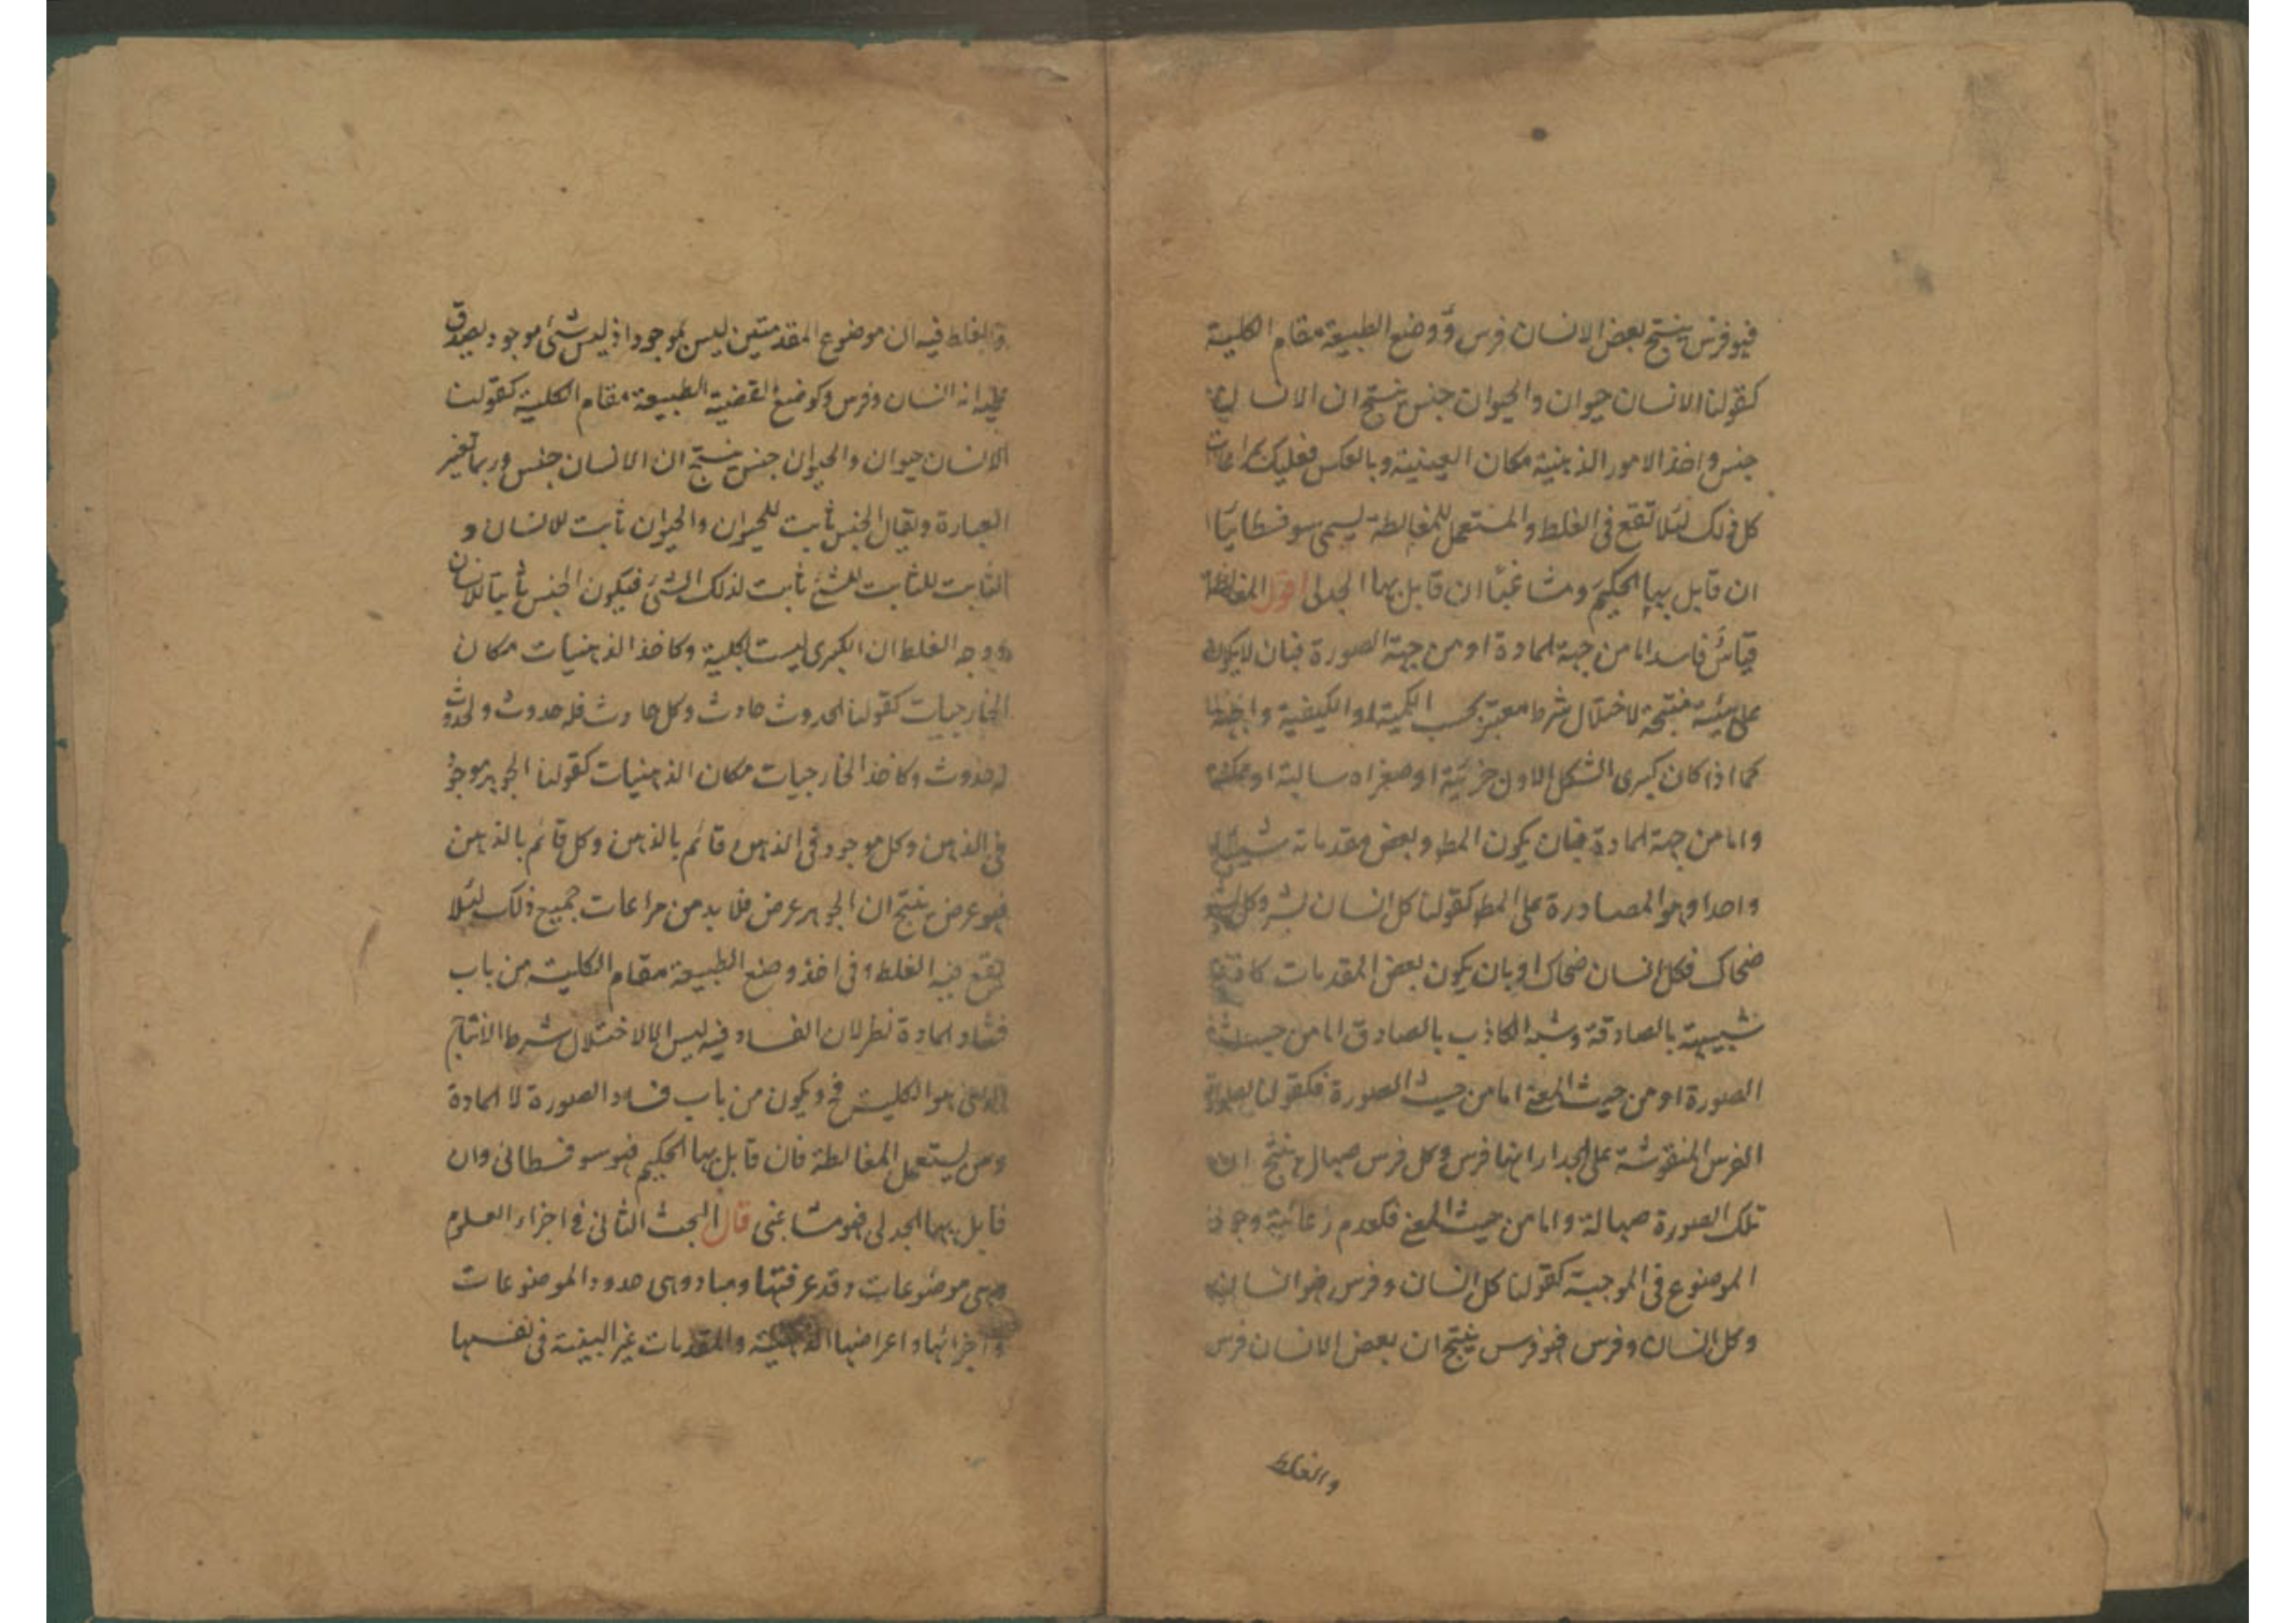 فهو فرس ينتج بعض الانسان فرس و وضع الطبيعية مقام الكلية
كقولنا الانسان حيوان والحيوان جنس ينتج ان الانسان
جنس واخذ الامور الذهنية مكان العينية وبالعكس فعليك بمراعات
كل ذلك لئلا تقع فى الغلط والمستعمل للمغالطة يسمى سوفسطايئا
ان قابل بها الحكيم ومشاغبا ان قابل بها الجدلى اقول المغالطة
قياس فاسد اما من جهة المادة او من جهة الصورة فبان لا يكون
على هيئة منتجة لاختلال شرط معتبر بحسب الكمية او الكيفية او الجهة
كما اذا كان كبرى الشكل الاول جزئية او صغراه سالبة او ممكنة
واما من جهة المادة فبان يكون المط وبعض مقدماته شيئا
واحدا وهو المصادرة على المط كقولنا كل انسان بشر وكل بشر
ضحاك فكل انسان ضحاك او بان يكون بعض المقدمات كاذبة
شبيهة بالصادقة وشبه الكاذب بالصادق اما من حيث
الصورة او من حيث المعنى اما من حيث الصورة فكقولنا لصورة
الفرس المنقوشة على الجدار انها فرس وكل فرس صهال ينتج ان
تلك الصورة صهالة واما من حيث المعنى فكعدم رعاية وجود
الموضوع فى الموجبة كقولنا كل انسان وفرس فهو انسان
وكل انسان وفرس فهو فرس ينتج ان بعض الانسان فرس
والغلط
والغلط فيه ان موضوع المقدمتين ليس بموجود اذ ليس شئ موجود يصدق
عليه انه انسان وفرس وكوضع القضية الطبيعية مقام الكلية كقولنا
الانسان حيوان والحيوان جنس ينتج ان الانسان جنس وربما تغير
العبارة ويقال الجنس ثابت للحيوان والحيوان ثابت للانسان و
الثابت للثابت للشئ ثابت لذلك الشئ فيكون الجنس ثابتا للانسان
ووجه الغلط ان الكبرى ليست بكلية وكاخذ الذهنيات مكان
الخارجيات كقولنا الحدوث حادث وكل حادث فله حدوث والحدوث
له حدوث وكاخذ الخارجيات مكان الذهنيات كقولنا الجوهر موجود
فى الذهن وكل موجود فى الذهن قائم بالذهن وكل قائم بالذهن
فهو عرض ينتج ان الجوهر عرض فلا بد من مراعات جميع ذلك لئلا
يقع فيه الغلط وفى اخذ وضع الطبيعية مقام الكلية من باب
فساد المادة نظر لان الفساد فيه ليس الا لاختلال شرط الانتاج
الذى هو الكلية فح ويكون من باب فساد الصورة لا المادة
ومن يستعمل المغالطة فان قابل بها الحكيم فهو سوفسطائى وان
قابل بها الجدلى فهو مشاغبى قال البحث الثانى فى اجزاء العلوم
وهى موضوعات وقد عرفتها ومبادوهى حدود الموضوعات
واجزائها واعراضها الذاتية والمقدمات غير البينة فى نفسها